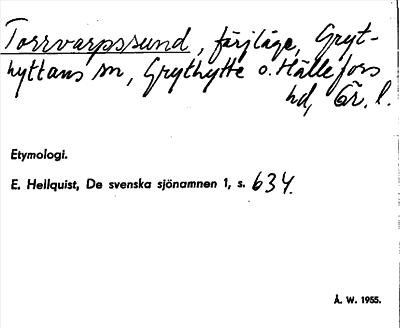 Torrvarpssund, färjläge, Gryt-
hyttans sn, Grythytte o. Hällefors
hd, Ör. l.
Etymologi.
E. Hellquist, De svenska sjönamnen 1, s. 634.
Å. W. 1955.